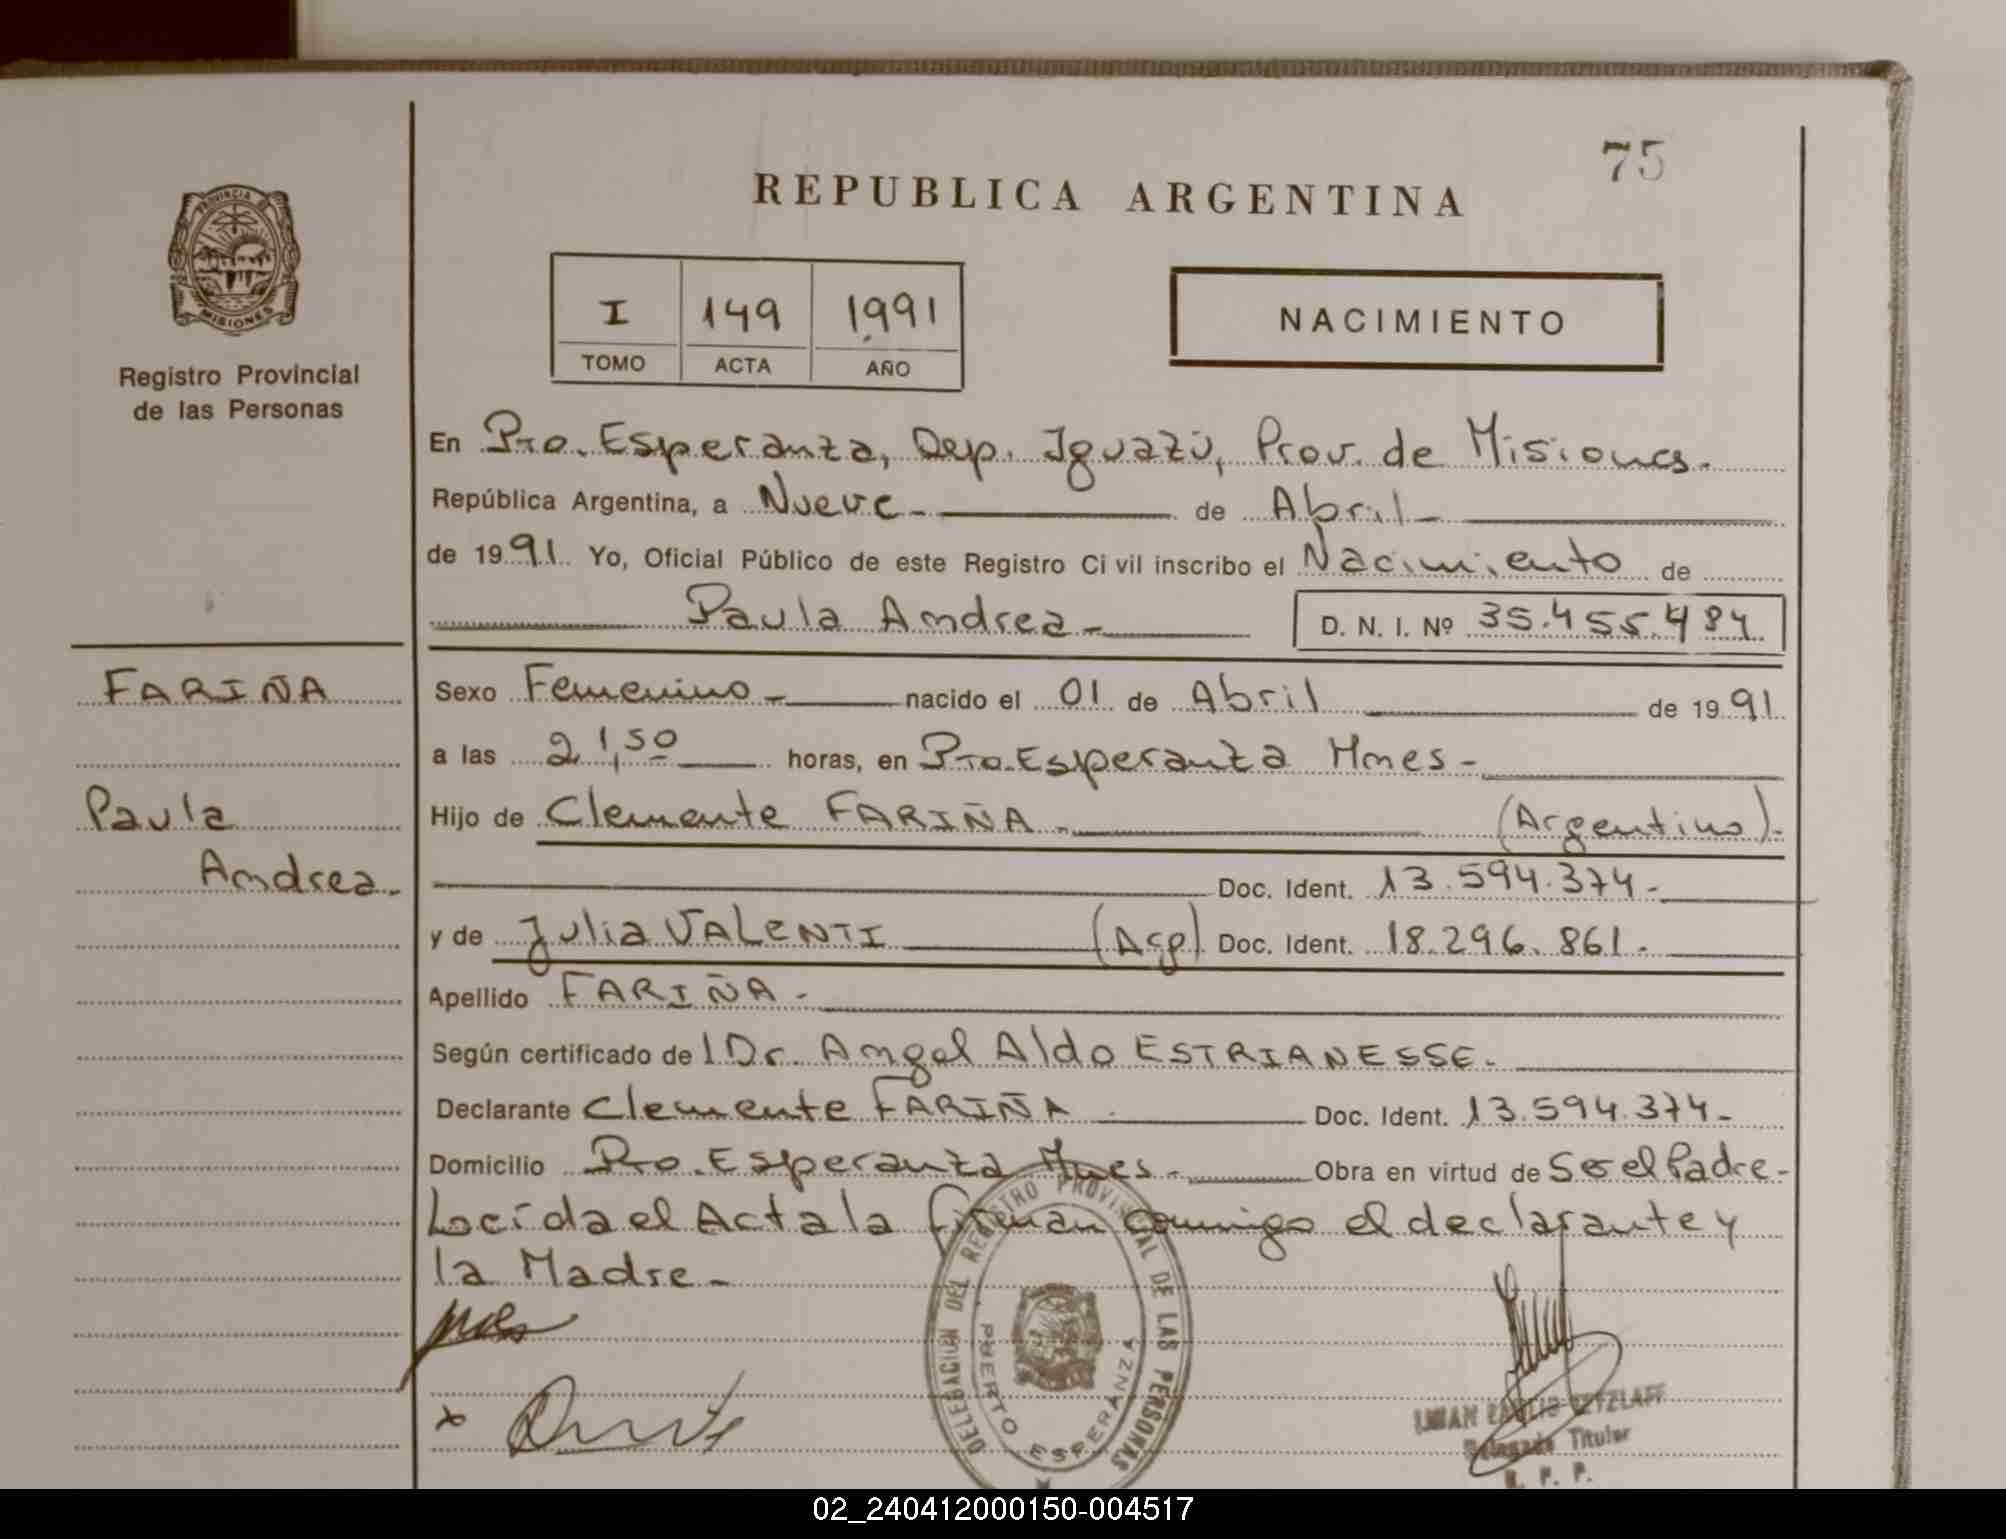 75
REPUBLICA ARGENTINA
PROVINCIA D
MISIONES
Registro Provincial
de las Personas
I 149 1991
TOMO ACTA AÑO
NACIMIENTO
En Pto. Esperanza, Dep. Iguazú, Prov. de Misiones.
República Argentina, a Nueve - de Abril -
de 1991. Yo, Oficial Público de este Registro Civil inscribo el Nacimiento de
Paula Andrea - D. N. I. Nº 35.455.484
FARIÑA
Paula
Andrea.
Sexo Femenino - nacido el 01 de Abril de 1991.
a las 21,50 horas, en Pto. Esperanza Mnes -
Hijo de Clemente FARIÑA - (Argentino).
Doc. Ident. 13.594.374.-
y de Julia VALENTI (Arg) Doc. Ident. 18.296.861.-
Apellido FARIÑA -
Según certificado de l Dr. Angel Aldo ESTRIANESSE.
Declarante Clemente FARIÑA Doc. Ident. 13.594.374-
Domicilio Pto. Esperanza Mnes - Obra en virtud de Ser el Padre -
Leída el Acta la firman conmigo el declarante y
la Madre -
DELEGACION DEL REGISTRO PROVINCIAL DE LAS PERSONAS
PUERTO ESPERANZA
Delegado Titular
R. P. P.
02_240412000150-004517